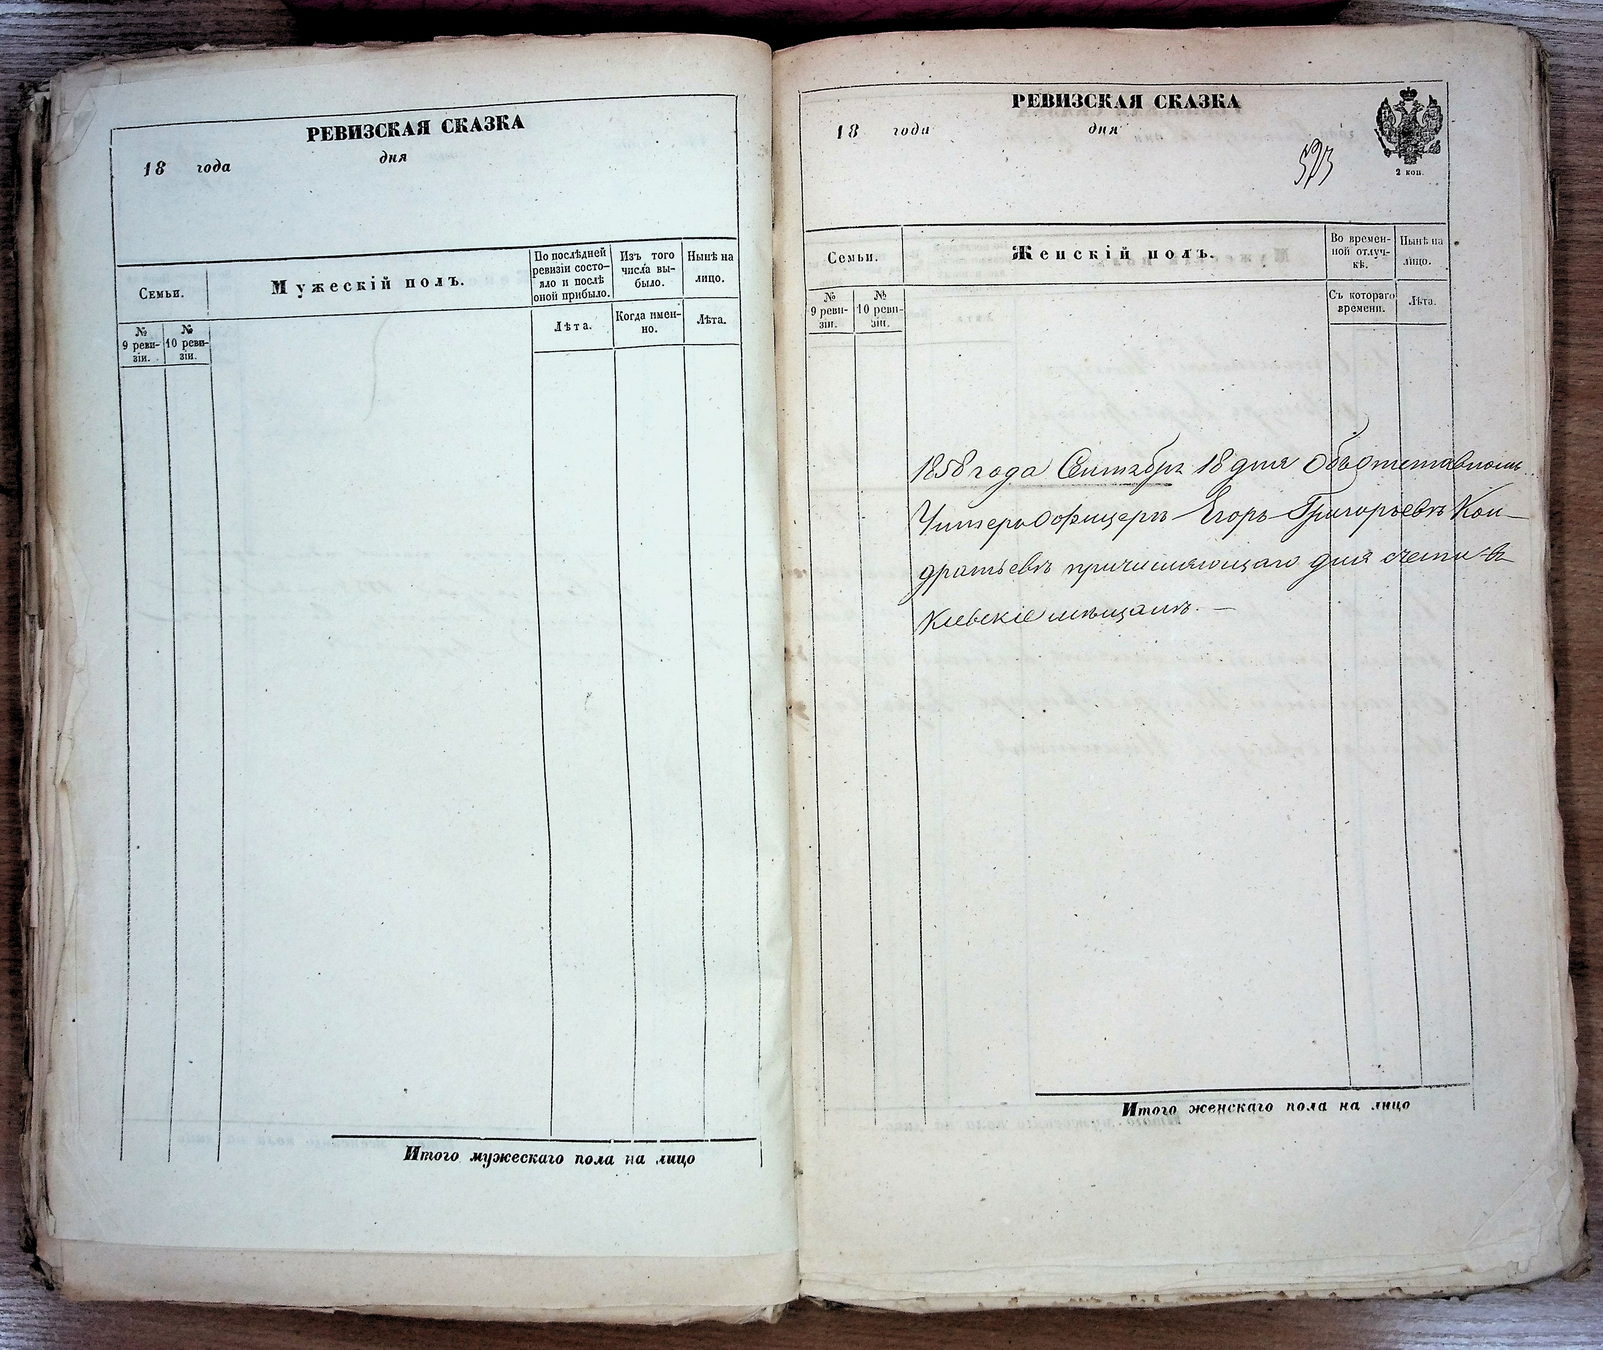 РЕВИЗСКАЯ СКАЗКА
18 года дня
Семьи.
Мужескій полъ.
По послѣдней ревизіи состо-
яло и послѣ
оной прибыло.
Изъ того
числа вы-
было.
Нынѣ на
лицо.
№
9 реви-
зіи.
№
10 реви-
зіи.
Лѣта.
Когда имен-
но.
Лѣта.
Итого мужескаго пола на лицо
РЕВИЗСКАЯ СКАЗКА
18 года дня
2 коп.
Семьи.
Женскій полъ.
Во времен-
ной отлуч-
кѣ.
Нынѣ на
лицо.
№
9 реви-
зіи.
№
10 реви-
зіи.
Съ котораго
времени.
Лѣта.
1858 года Сентября 18 дня Объ отставномъ
Унтеръ Офицеръ Егоръ Григорьевъ Кон-
дратьевъ причисляющаго для счета въ
Кіевскіе мѣщанъ. —
Итого женскаго пола на лицо